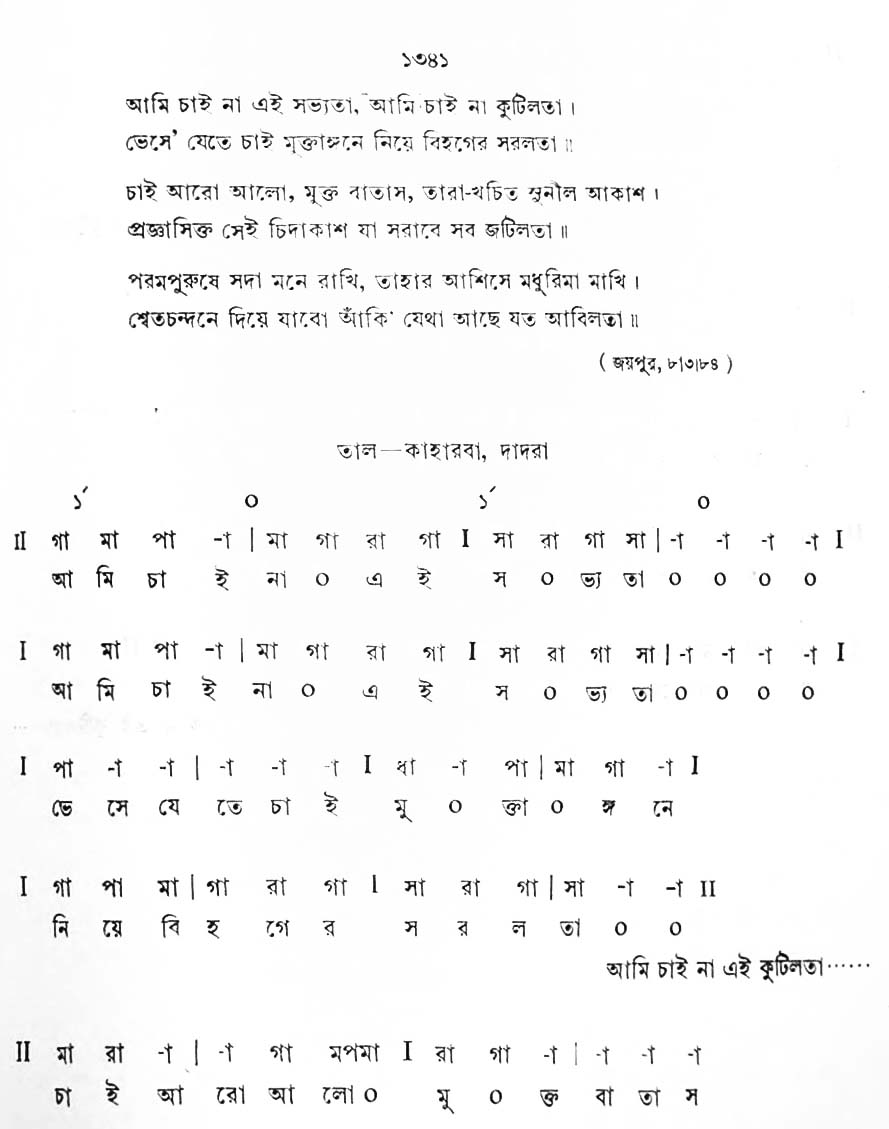 ১৩৪১
আমি চাই না এই সভ্যতা, আমি চাই না কুটিলতা।
ভেসে' যেতে চাই মুক্তাঙ্গনে নিয়ে বিহগের সরলতা॥
চাই আরো আলো, মুক্ত বাতাস, তারা-খচিত সুনীল আকাশ।
প্রজ্ঞাসিক্ত সেই চিদাকাশ যা সরাবে সব জটিলতা॥
পরমপুরুষে সদা মনে রাখি, তাহার আশিসে মধুরিমা মাখি।
শ্বেতচন্দনে দিয়ে যাবো আঁকি' যেথা আছে যত আবিলতা॥
( জয়পুর, ৮।৩।৮৪ )
তাল—কাহারবা, দাদরা
১´ ০ ১´ ০
II গা মা পা -া | মা গা রা গা I সা রা গা সা | -া -া -া -া I
আ মি চা ই না ০ এ ই স ০ ভ্য তা ০ ০ ০ ০
I গা মা পা -া | মা গা রা গা I সা রা গা সা | -া -া -া -া I
আ মি চা ই না ০ এ ই স ০ ভ্য তা ০ ০ ০ ০
I পা -া -া | -া -া -া I ধা -া পা | মা গা -া I
ভে সে যে তে চা ই মু ০ ক্তা ০ ঙ্গ নে
I গা পা মা | গা রা গা I সা রা গা | সা -া -া II
নি য়ে বি হ গে র স র ল তা ০ ০
আমি চাই না এই কুটিলতা······
II মা রা -া | -া গা মপমা I রা গা -া | -া -া -া
চা ই আ রো আ লো ০ মু ০ ক্ত বা তা স